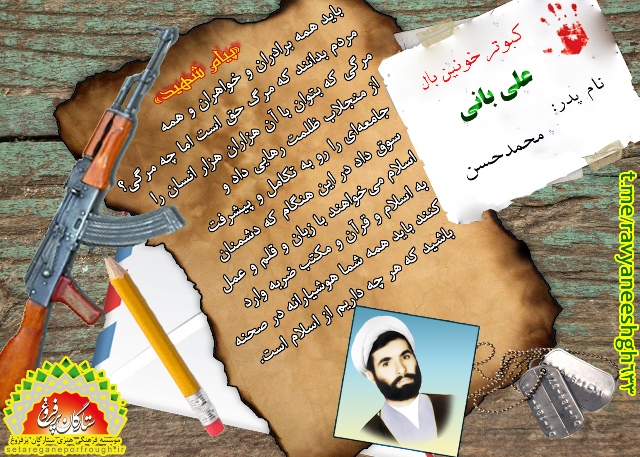 «پیام شهید»
باید همه برادران و خواهران و همه
مردم بدانند که مرگ حق است اما چه مرگی؟
مرگی که بتوان با آن هزاران هزار انسان را
از منجلاب ظلمت رهایی داد و
جامعه‌ای را رو به تکامل و پیشرفت
سوق داد در این هنگام که دشمنان
اسلام می‌خواهند با زبان و قلم و عمل
به اسلام و قرآن و مکتب ضربه وارد
کنند باید همه شما هوشیارانه در صحنه
باشید که هر چه داریم از اسلام است.
کبوتر خونین بال
علی بانی
نام پدر:
محمدحسن
t.me/ravyaneeshgh123
ستارگان پرفروغ
موسسه فرهنگی هنری ستارگان پرفروغ
setareganeporfrough.ir